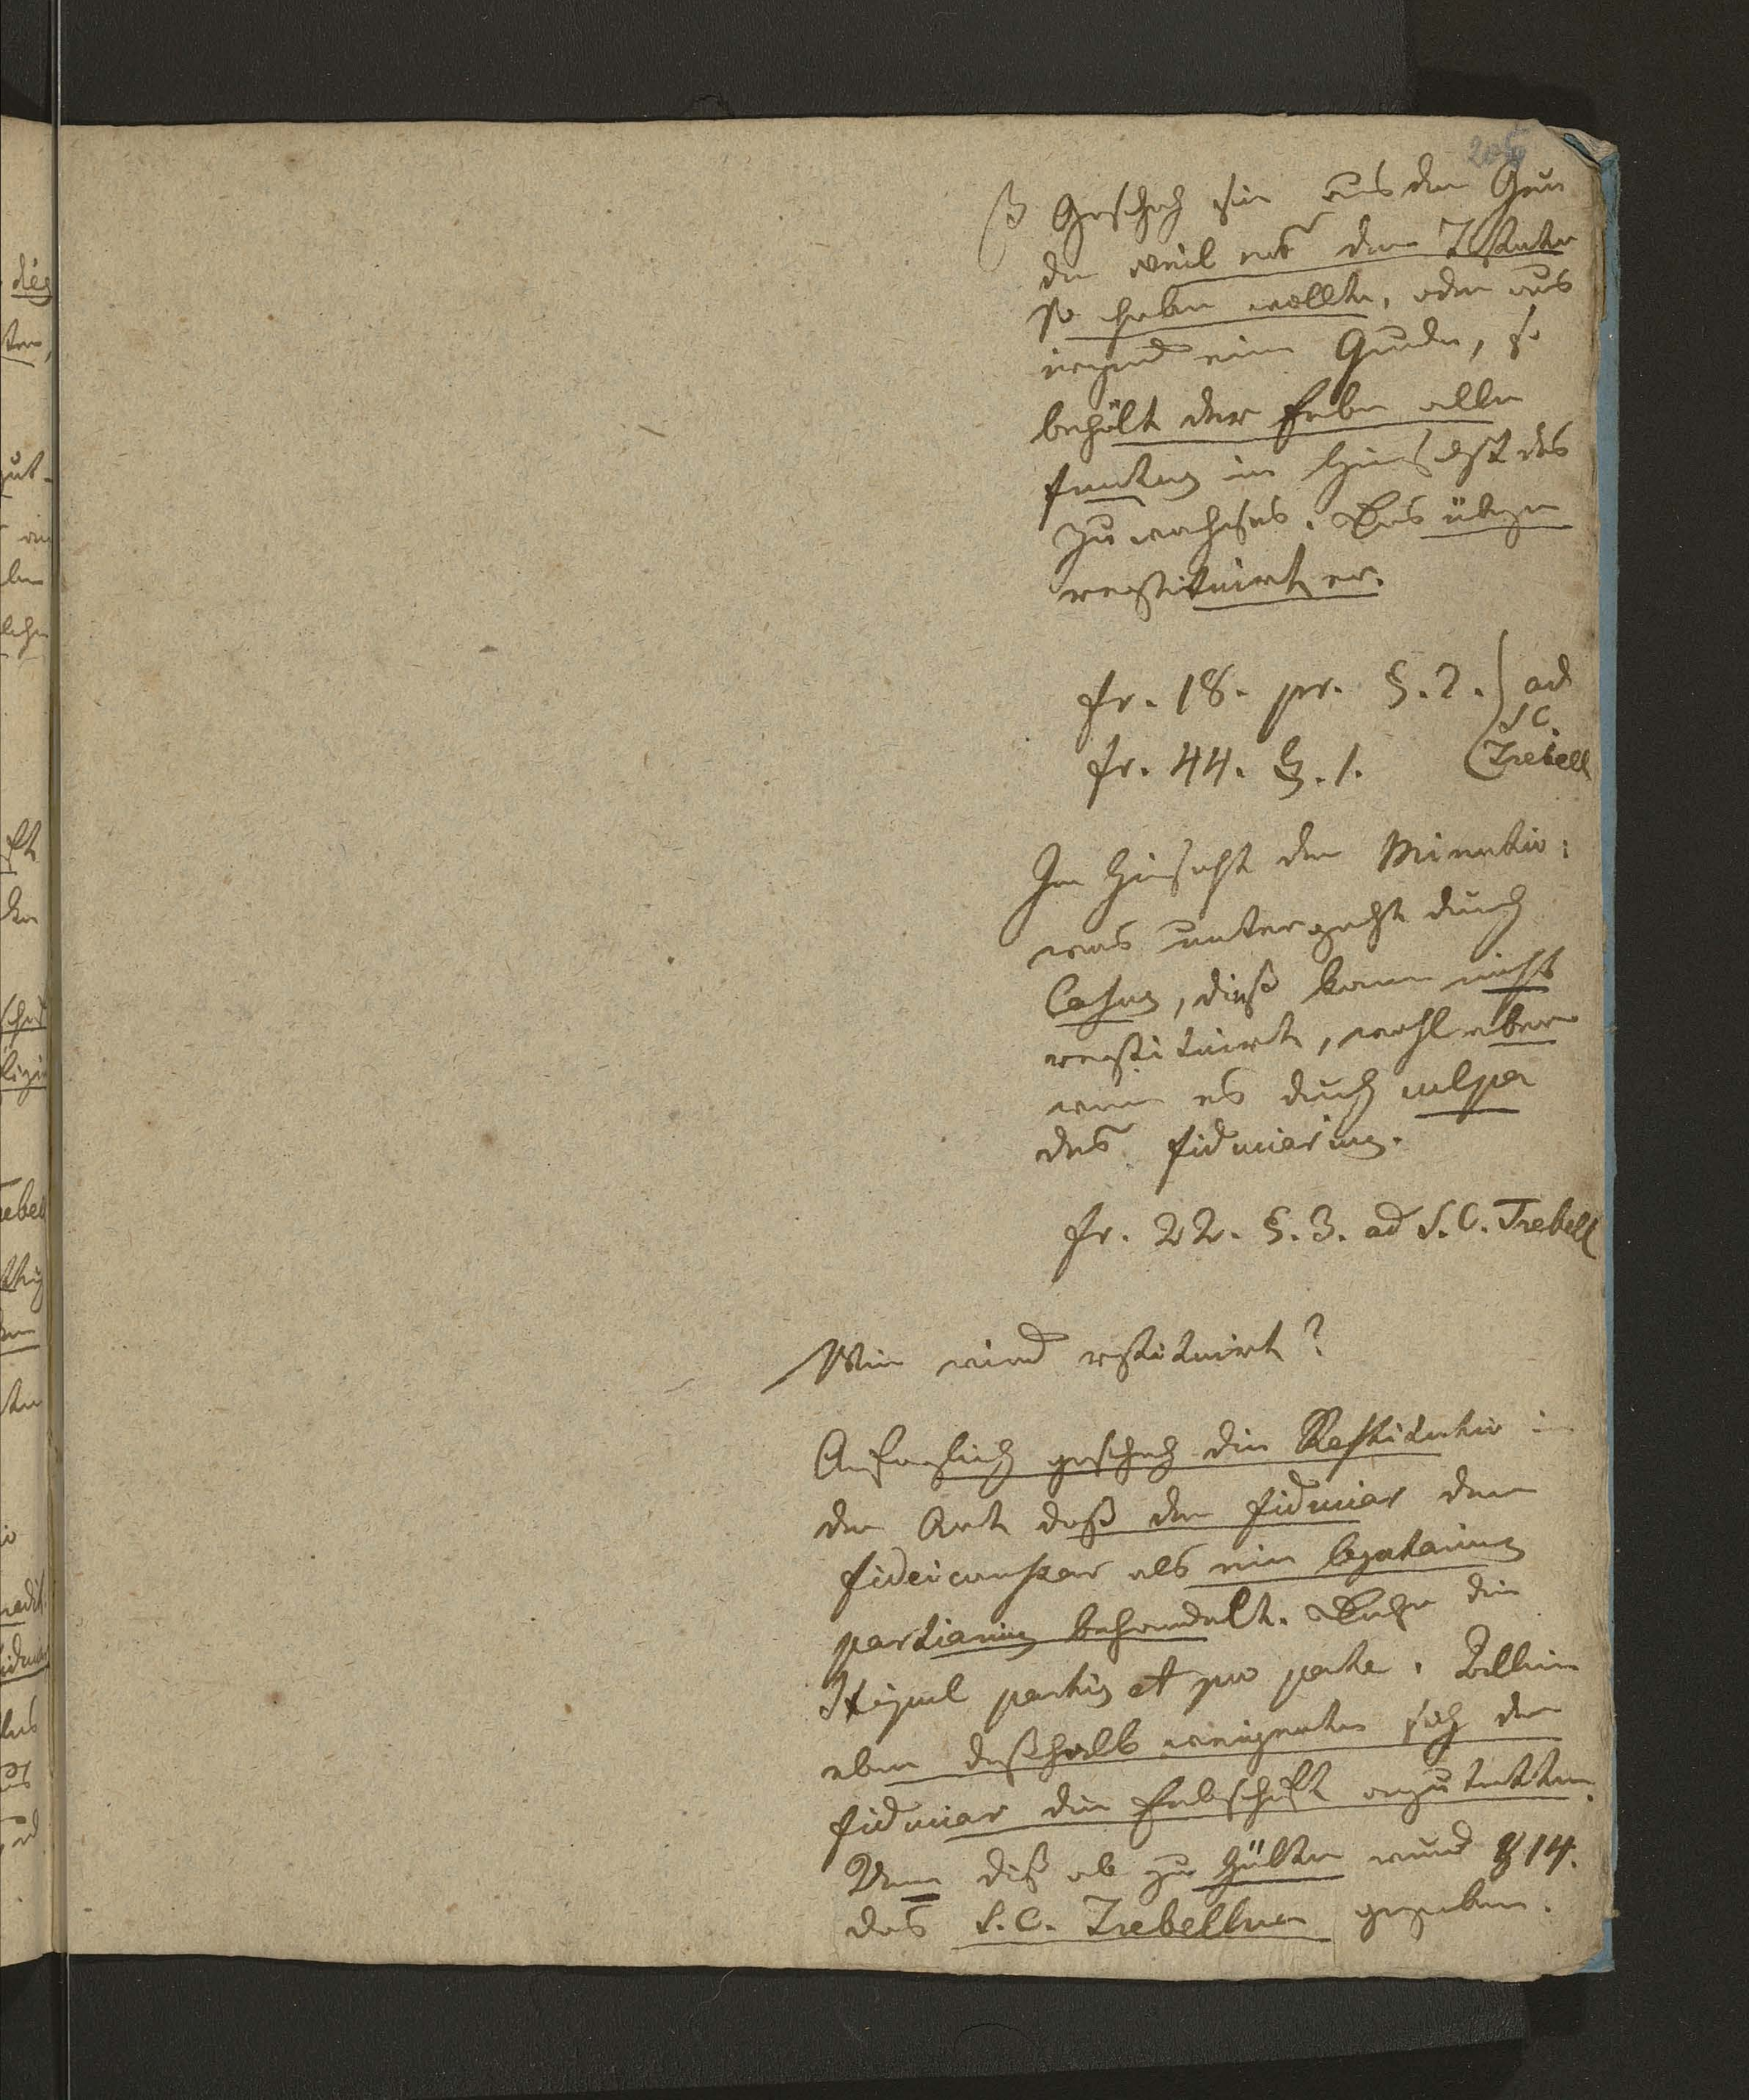 205
β Geschah sie aus dem Grun
de weil es der Testator
so haben wollte, oder aus
irgend eim Grunde, so
behält der Erbe alle
fructus in Hinsicht des
Zuwachses. Das übrige
restituirt er.
fr. 18. pr. §. 2. ) ad
SC.
fr. 44. §. 1. ( Trebell
In Hinsicht der Minutio:
was untergeht durch
Casus, dieß kann nicht
restituirt, wohl aber
wenn es durch culpa
des fiduciarius.
fr. 22. §. 3. ad S. C. Trebell
Wie wird restituirt?
Anfanglich geschah die Restitutio in
der Art daß der fiduciar den
fideicomissar als ein legatarius
partiarius behandelt. Daher die
Stipul partis et pro parte.
eben deßhalb weigerten sich der
fiduciar die Erbschaft anzutretten.
Um diß ab zu wurd 814.
das S. C. Trebellian gegeben.